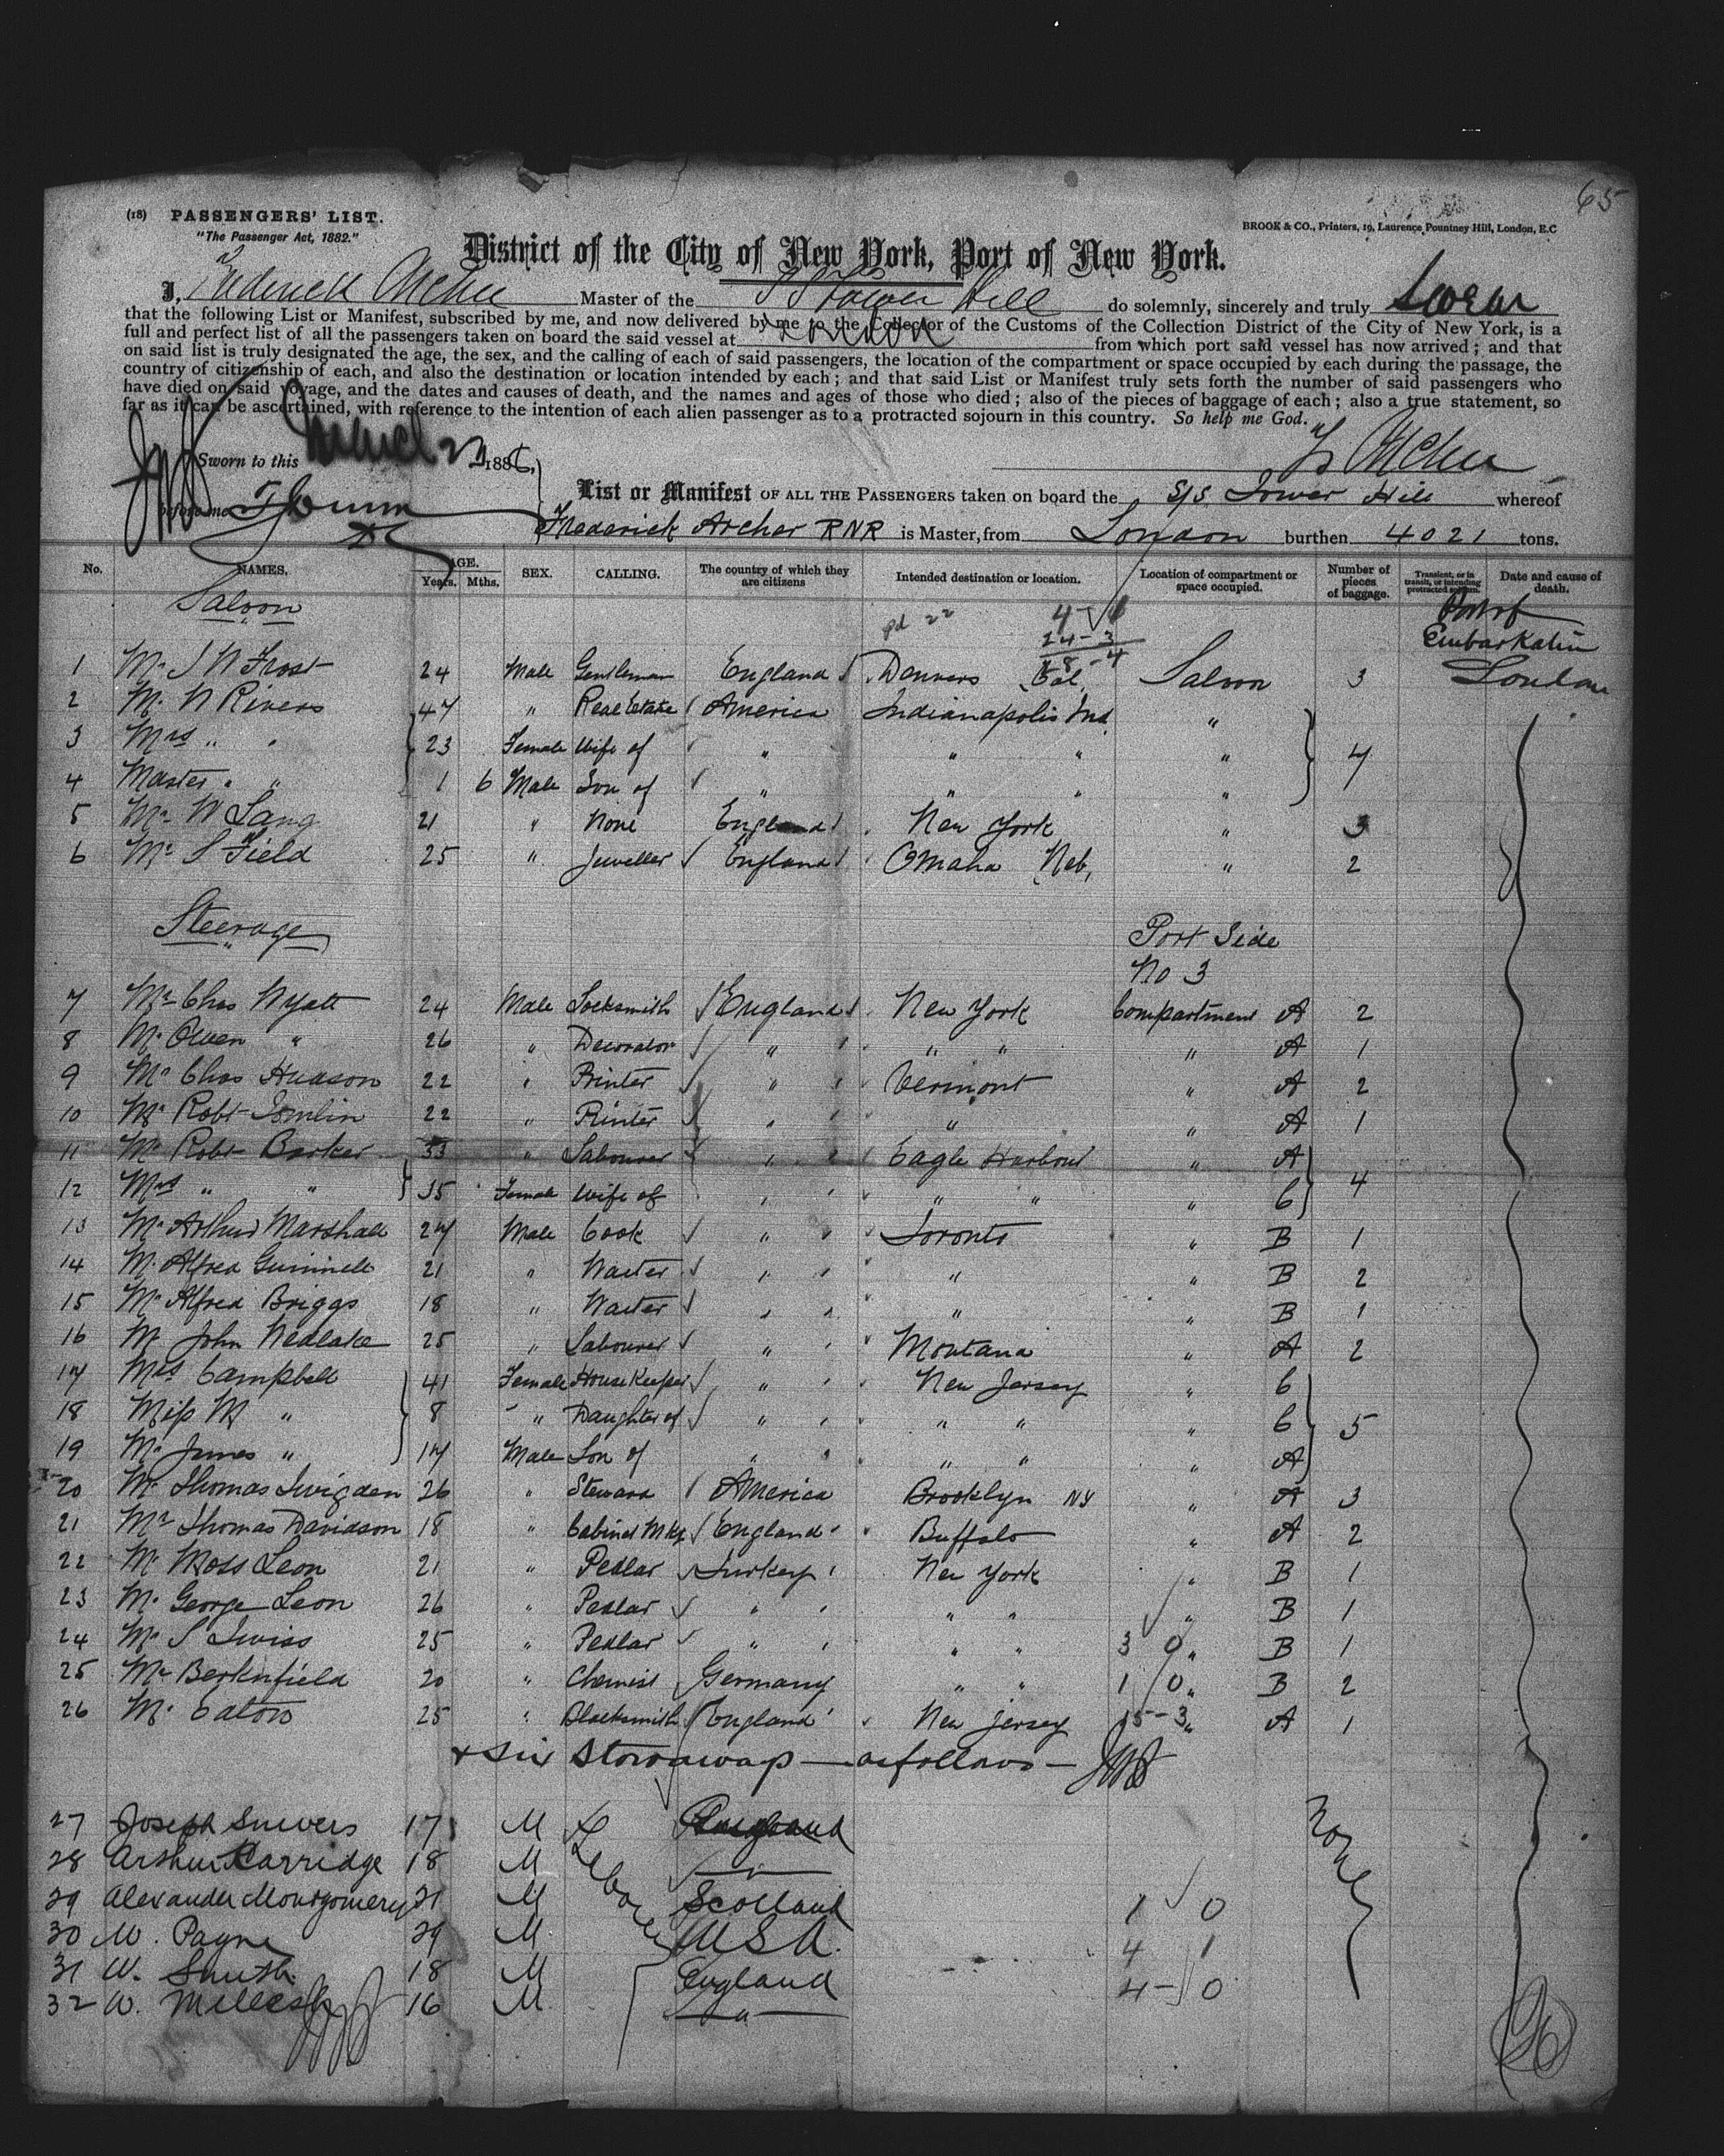 65
(18) PASSENGERS' LIST.
"The Passenger Act, 1882."
BROOK & CO., Printers, 19, Laurence Pountney Hill, London, E.C
District of the City of New York, Port of New York.
I, Frederick Archer Master of the SS Tower Hill do solemnly, sincerely and truly Swear
that the following List or Manifest, subscribed by me, and now delivered by me to the Collector of the Customs of the Collection District of the City of New York, is a
full and perfect list of all the passengers taken on board the said vessel at London from which port said vessel has now arrived; and that
on said list is truly designated the age, the sex, and the calling of each of said passengers, the location of the compartment or space occupied by each during the passage, the
country of citizenship of each, and also the destination or location intended by each; and that said List or Manifest truly sets forth the number of said passengers who
have died on said voyage, and the dates and causes of death, and the names and ages of those who died; also of the pieces of baggage of each; also a true statement, so
far as it can be ascertained, with reference to the intention of each alien passenger as to a protracted sojourn in this country. So help me God.
Sworn to this March 1886,
F Archer
before me
List or Manifest OF ALL THE PASSENGERS taken on board the S/S Tower Hill whereof
Frederick Archer RNR is Master, from London burthen 4021 tons.
No. NAMES. AGE. Years. Mths. SEX. CALLING. The country of which they are citizens Intended destination or location. Location of compartment or space occupied. Number of pieces of baggage. Transient, or in transit, or intending protracted sojourn. Date and cause of death.
Saloon
pd 22 4 1
24-3
18-4
Port of
Embarkation
1 Mr J N Frost 24 Male Gentleman England Denvers Col Saloon 3 London
2 Mr N Rivers 47 " Real Estate America Indianapolis Ind "
3 Mrs " " 23 Female Wife of " " " " 7
4 Master " " 1 6 Male Son of " " " "
5 Mr W Lang 21 " None England New York " 3
6 Mr S Field 25 " Jeweller England Omaha Neb, " 2
Steerage
Port Side
No 3
7 Mr Chas Wyatt 24 Male Locksmith England New York Compartment A 2
8 Mr Owen " 26 " Decorator " " " " A 1
9 Mr Chas Hudson 22 " Printer " Vermont " A 2
10 Mr Robt Tomlin 22 " Printer " " " A 1
11 Mr Robt Barker 33 " Labourer " Eagle Harbour " A
12 Mrs " " 35 Female Wife of " " " " C 4
13 Mr Arthur Marshall 27 Male Cook " Toronto " B 1
14 Mr Alfred Gunnell 21 " Waiter " " " B 2
15 Mr Alfred Briggs 18 " Waiter " " " B 1
16 Mr John Nedlake 25 " Labourer " Montana " A 2
17 Mrs Campbell 41 Female HouseKeeper " New Jersey " C
18 Miss M " 8 " Daughter of " " " " C 5
19 Mr James " 17 Male Son of " " " " A
20 Mr Thomas Twigden 26 " Steward America Brooklyn NY " A 3
21 Mr Thomas Davidson 18 " Cabinet Mkr England Buffalo " A 2
22 Mr Moss Leon 21 " Pedlar Turkey New York " B 1
23 Mr George Leon 26 " Pedlar " " " " B 1
24 Mr S Swiss 25 " Pedlar " " " 3 0 " B 1
25 Mr Berknfield 20 " Chemist Germany " " 1 0 " B 2
26 Mr Eaton 25 " Blacksmith England New Jersey 15-3 " A 1
+ six Stowaways — as follows —
27 Joseph 17 M Labourer England None
28 Arthur Carridge 18 M "
29 Alexander Montgomery 21 M Scotland 1 0
30 W. Payne 29 M USA. 4 1
31 W. Smith 18 M England 4 - 0
32 W. 16 M "